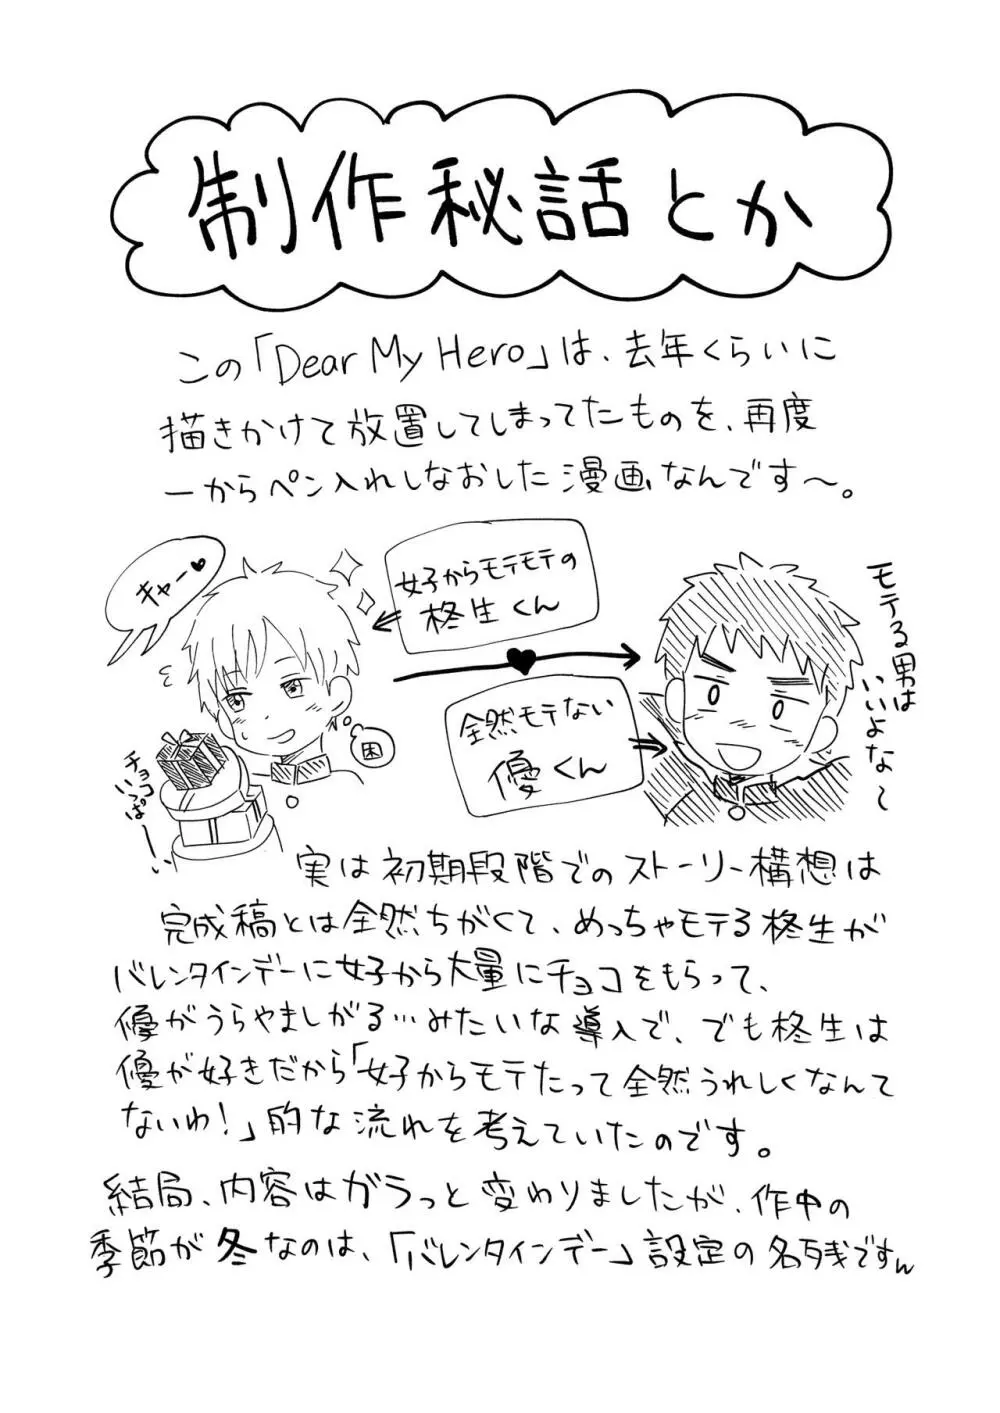 制作秘話とか
この「Dear My Hero」は、去年くらいに
描きかけて放置してしまってたものを、再度
一からペン入れしなおした漫画なんです〜。
キャー♥
女子からモテモテの
柊生くん
全然モテない
優くん
モテる男は
いいよな〜
困
チョコ
いっぱーい
実は初期段階でのストーリー構想は
完成稿とは全然ちがくて、めっちゃモテる柊生が
バレンタインデーに女子から大量にチョコをもらって、
優がうらやましがる…みたいな導入で、でも柊生は
優が好きだから「女子からモテたって全然うれしくなんて
ないわ!」的な流れを考えていたのです。
結局、内容はガラっと変わりましたが、作中の
季節が冬なのは、「バレンタインデー」設定の名残ですん